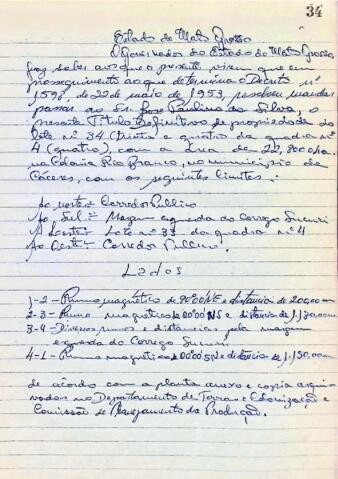 34
Estado de Mato Grosso
O Governador do Estado de Mato Grosso,
faz saber aos que o presente virem que em
prosseguimento ao que determina o Decreto nº
1598, de 22 de maio de 1953, resolveu mandar
passar ao Sr. José Paulino da Silva, o
presente Titulo Definitivo de propriedade do
lote nº 34 (trinta e quatro da quadra nº
4 (quatro), com a área de 22,800 ha.
na Colonia Rio Branco, no municipio de
Cáceres, com os seguintes limites:
Ao norte:- Corredor Publico
Ao Sul:- Margem esquerda do Corrego Sucuri
A Leste:- Lote nº 33 da quadra nº 4
Ao Oeste:- Corredor Publico.
Lados
1-2- Rumo magnético de 90º00'NE e distancia de 200,00 m
2-3- Rumo magnetico 00º00'NS e distancia de 1.130,00 m
3-4- Diversos rumos e distancias pela margem
esquerda do Corrego Sucuri
4-1- Rumo magnetico de 00º00'SN e distancia de 1.150,00 m
de acôrdo com a planta anexo e copia arqui-
vados no Departamento de Terras e Colonização e
Comissão de Planejamento da Produção.